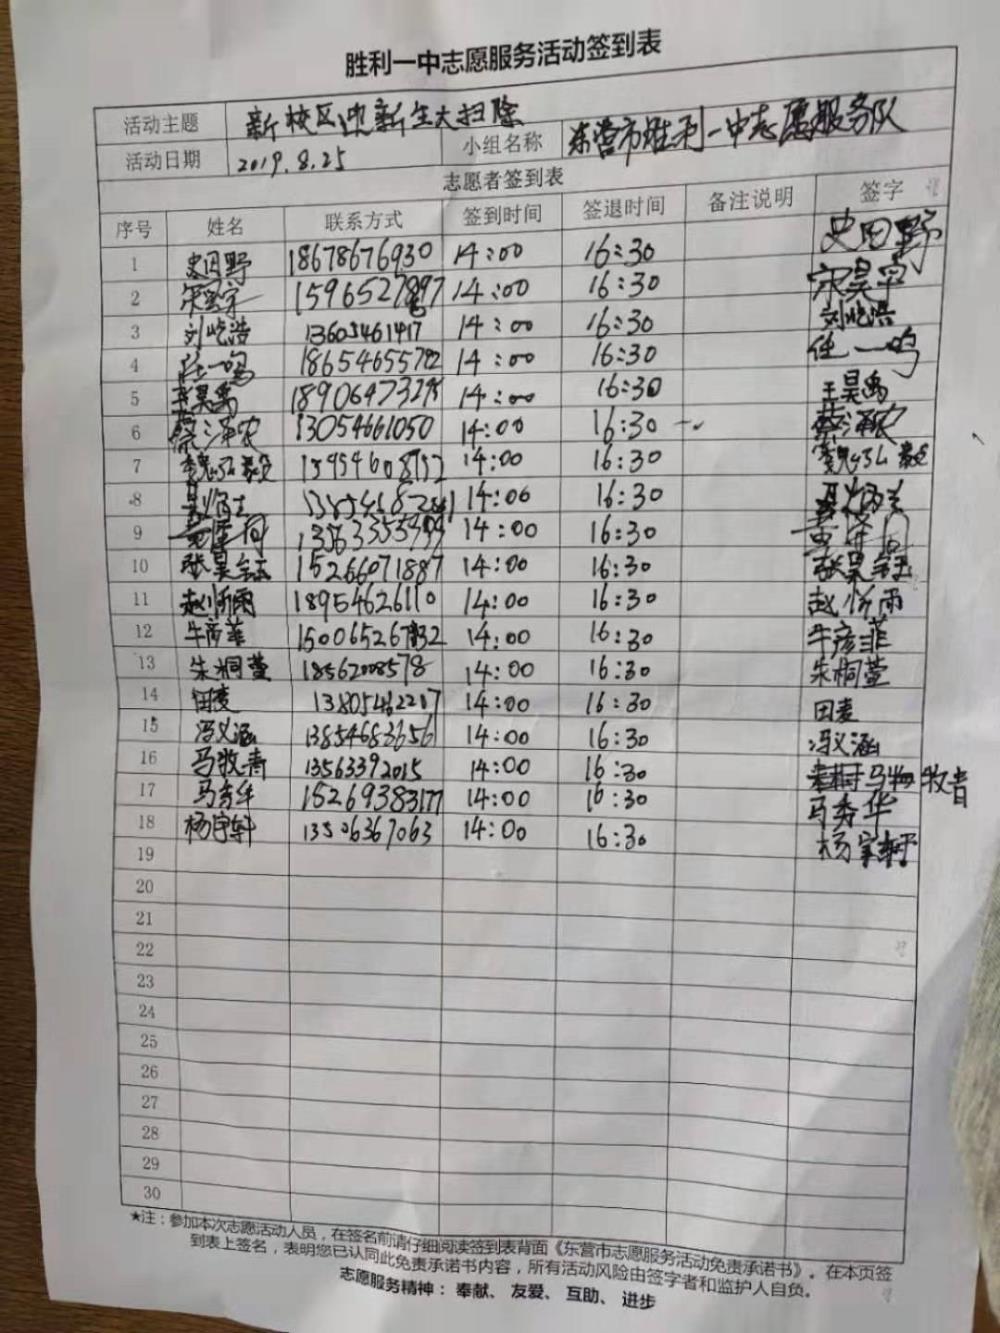 胜利一中志愿服务活动签到表
活动主题 新校区迎新生大扫除
活动日期 2019.8.25 小组名称 东营市胜利一中志愿服务队
志愿者签到表
序号 姓名 联系方式 签到时间 签退时间 备注说明 签字
1 史田野 18678676930 14:00 16:30 史田野
2 宋昊宇 14:00 16:30 宋昊宇
3 刘屹浩 13605461417 14:00 16:30 刘屹浩
4 任一鸣 18654655782 14:00 16:30 任一鸣
5 王昊禹 14:00 16:30 王昊禹
6 蔡泽农 13054661050 14:00 16:30 蔡泽农
7 14:00 16:30
8 14:00 16:30
9 14:00 16:30
10 张昊钰 15266071887 14:00 16:30 张昊钰
11 赵忻雨 18954626110 14:00 16:30 赵忻雨
12 牛彦菲 14:00 16:30 牛彦菲
13 朱桐萱 18562008578 14:00 16:30 朱桐萱
14 田麦 13805462207 14:00 16:30 田麦
15 冯义涵 13854683656 14:00 16:30 冯义涵
16 马牧青 13563392015 14:00 16:30 马牧青
17 马秀华 15269383177 14:00 16:30 马秀华
18 杨宇轩 13506367063 14:00 16:30 杨宇轩
19
20
21
22
23
24
25
26
27
28
29
30
★注：参加本次志愿活动人员，在签名前请仔细阅读签到表背面《东营市志愿服务活动免责承诺书》。在本页签
到表上签名，表明您已认同此免责承诺书内容，所有活动风险由签字者和监护人自负。
志愿服务精神：奉献、友爱、互助、进步